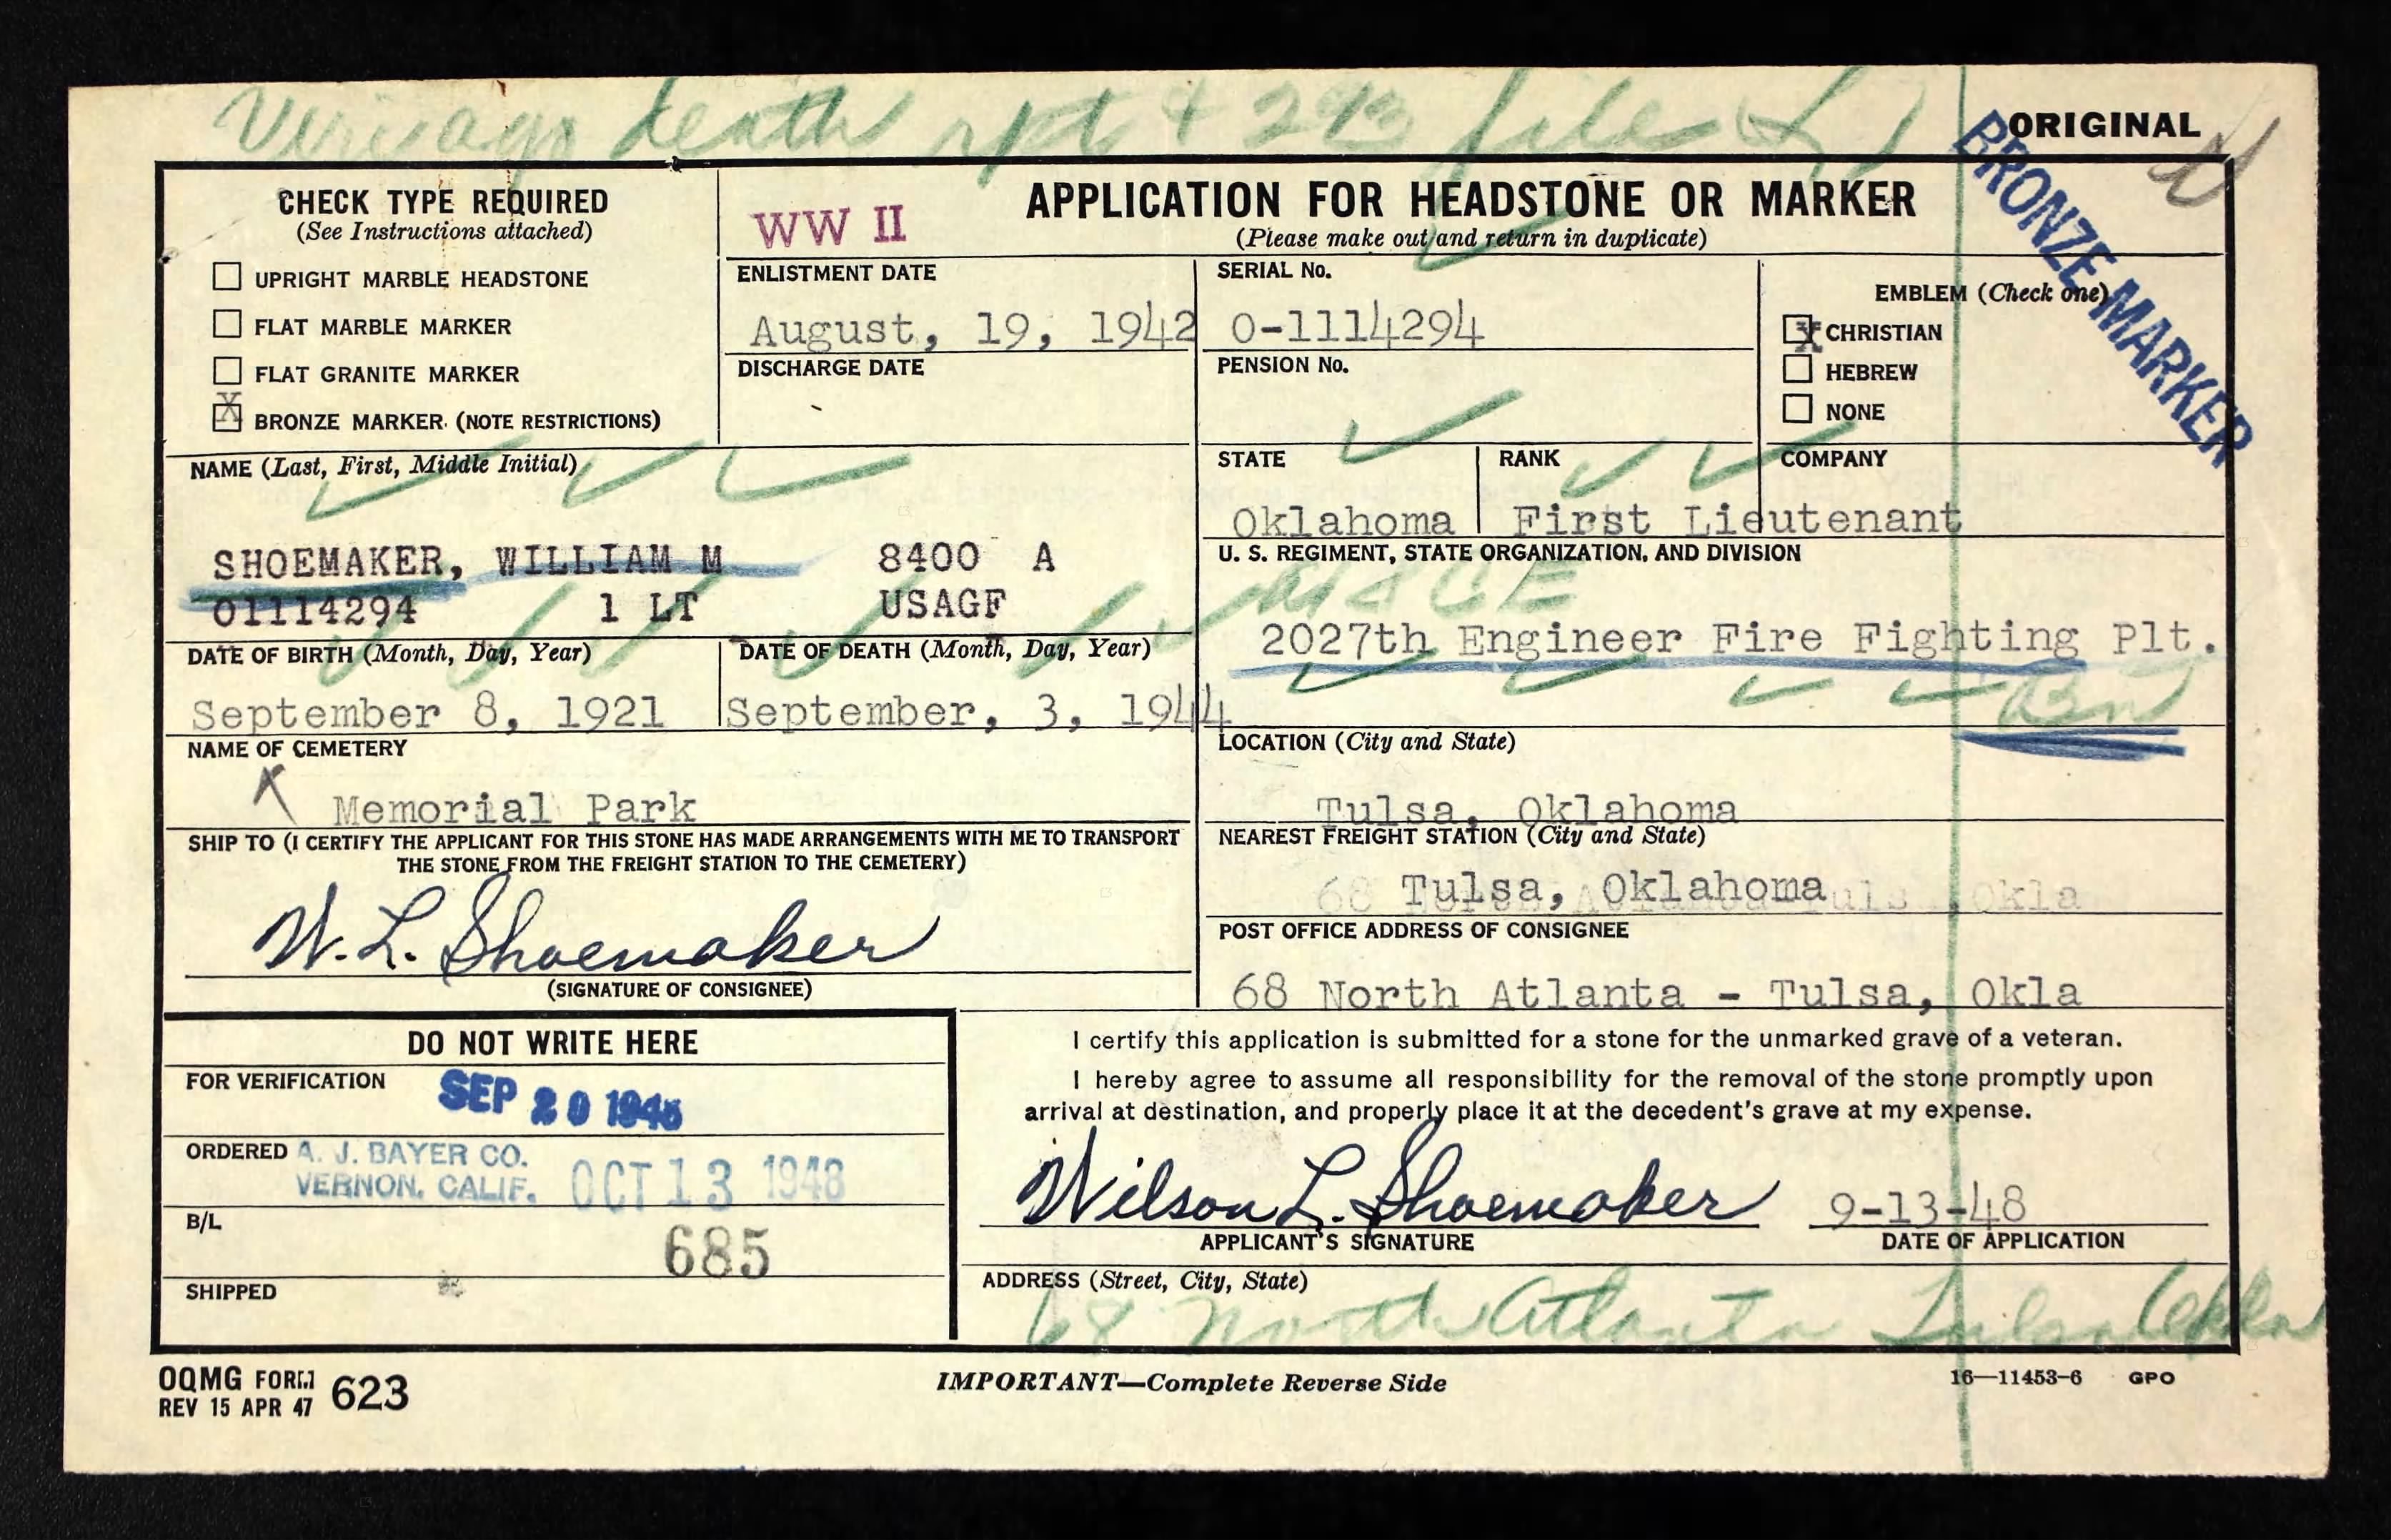 death rpt & 293 file
ORIGINAL
BRONZE MARKER
CHECK TYPE REQUIRED
(See Instructions attached)
UPRIGHT MARBLE HEADSTONE
FLAT MARBLE MARKER
FLAT GRANITE MARKER
X BRONZE MARKER (NOTE RESTRICTIONS)
WW II
APPLICATION FOR HEADSTONE OR MARKER
(Please make out and return in duplicate)
ENLISTMENT DATE
August, 19, 1942
DISCHARGE DATE
SERIAL No.
O-1114294
PENSION No.
EMBLEM (Check one)
X CHRISTIAN
HEBREW
NONE
NAME (Last, First, Middle Initial)
SHOEMAKER, WILLIAM M 8400 A
01114294 1 LT USAGF
STATE
Oklahoma
RANK
First Lieutenant
COMPANY
U. S. REGIMENT, STATE ORGANIZATION, AND DIVISION
2027th Engineer Fire Fighting Plt.
DATE OF BIRTH (Month, Day, Year)
September 8, 1921
DATE OF DEATH (Month, Day, Year)
September, 3, 1944
NAME OF CEMETERY
Memorial Park
LOCATION (City and State)
Tulsa, Oklahoma
SHIP TO (I CERTIFY THE APPLICANT FOR THIS STONE HAS MADE ARRANGEMENTS WITH ME TO TRANSPORT
THE STONE FROM THE FREIGHT STATION TO THE CEMETERY)
W. L. Shoemaker
(SIGNATURE OF CONSIGNEE)
NEAREST FREIGHT STATION (City and State)
Tulsa, Oklahoma
POST OFFICE ADDRESS OF CONSIGNEE
68 North Atlanta - Tulsa, Okla
DO NOT WRITE HERE
FOR VERIFICATION
SEP 20 1948
ORDERED
A. J. BAYER CO.
VERNON, CALIF.
OCT 13 1948
B/L
685
SHIPPED
I certify this application is submitted for a stone for the unmarked grave of a veteran.
I hereby agree to assume all responsibility for the removal of the stone promptly upon
arrival at destination, and properly place it at the decedent's grave at my expense.
Wilson L. Shoemaker
APPLICANT'S SIGNATURE
9-13-48
DATE OF APPLICATION
ADDRESS (Street, City, State)
68 North Atlanta Tulsa Okla
OQMG FORM 623
REV 15 APR 47
IMPORTANT—Complete Reverse Side
16—11453-6 GPO